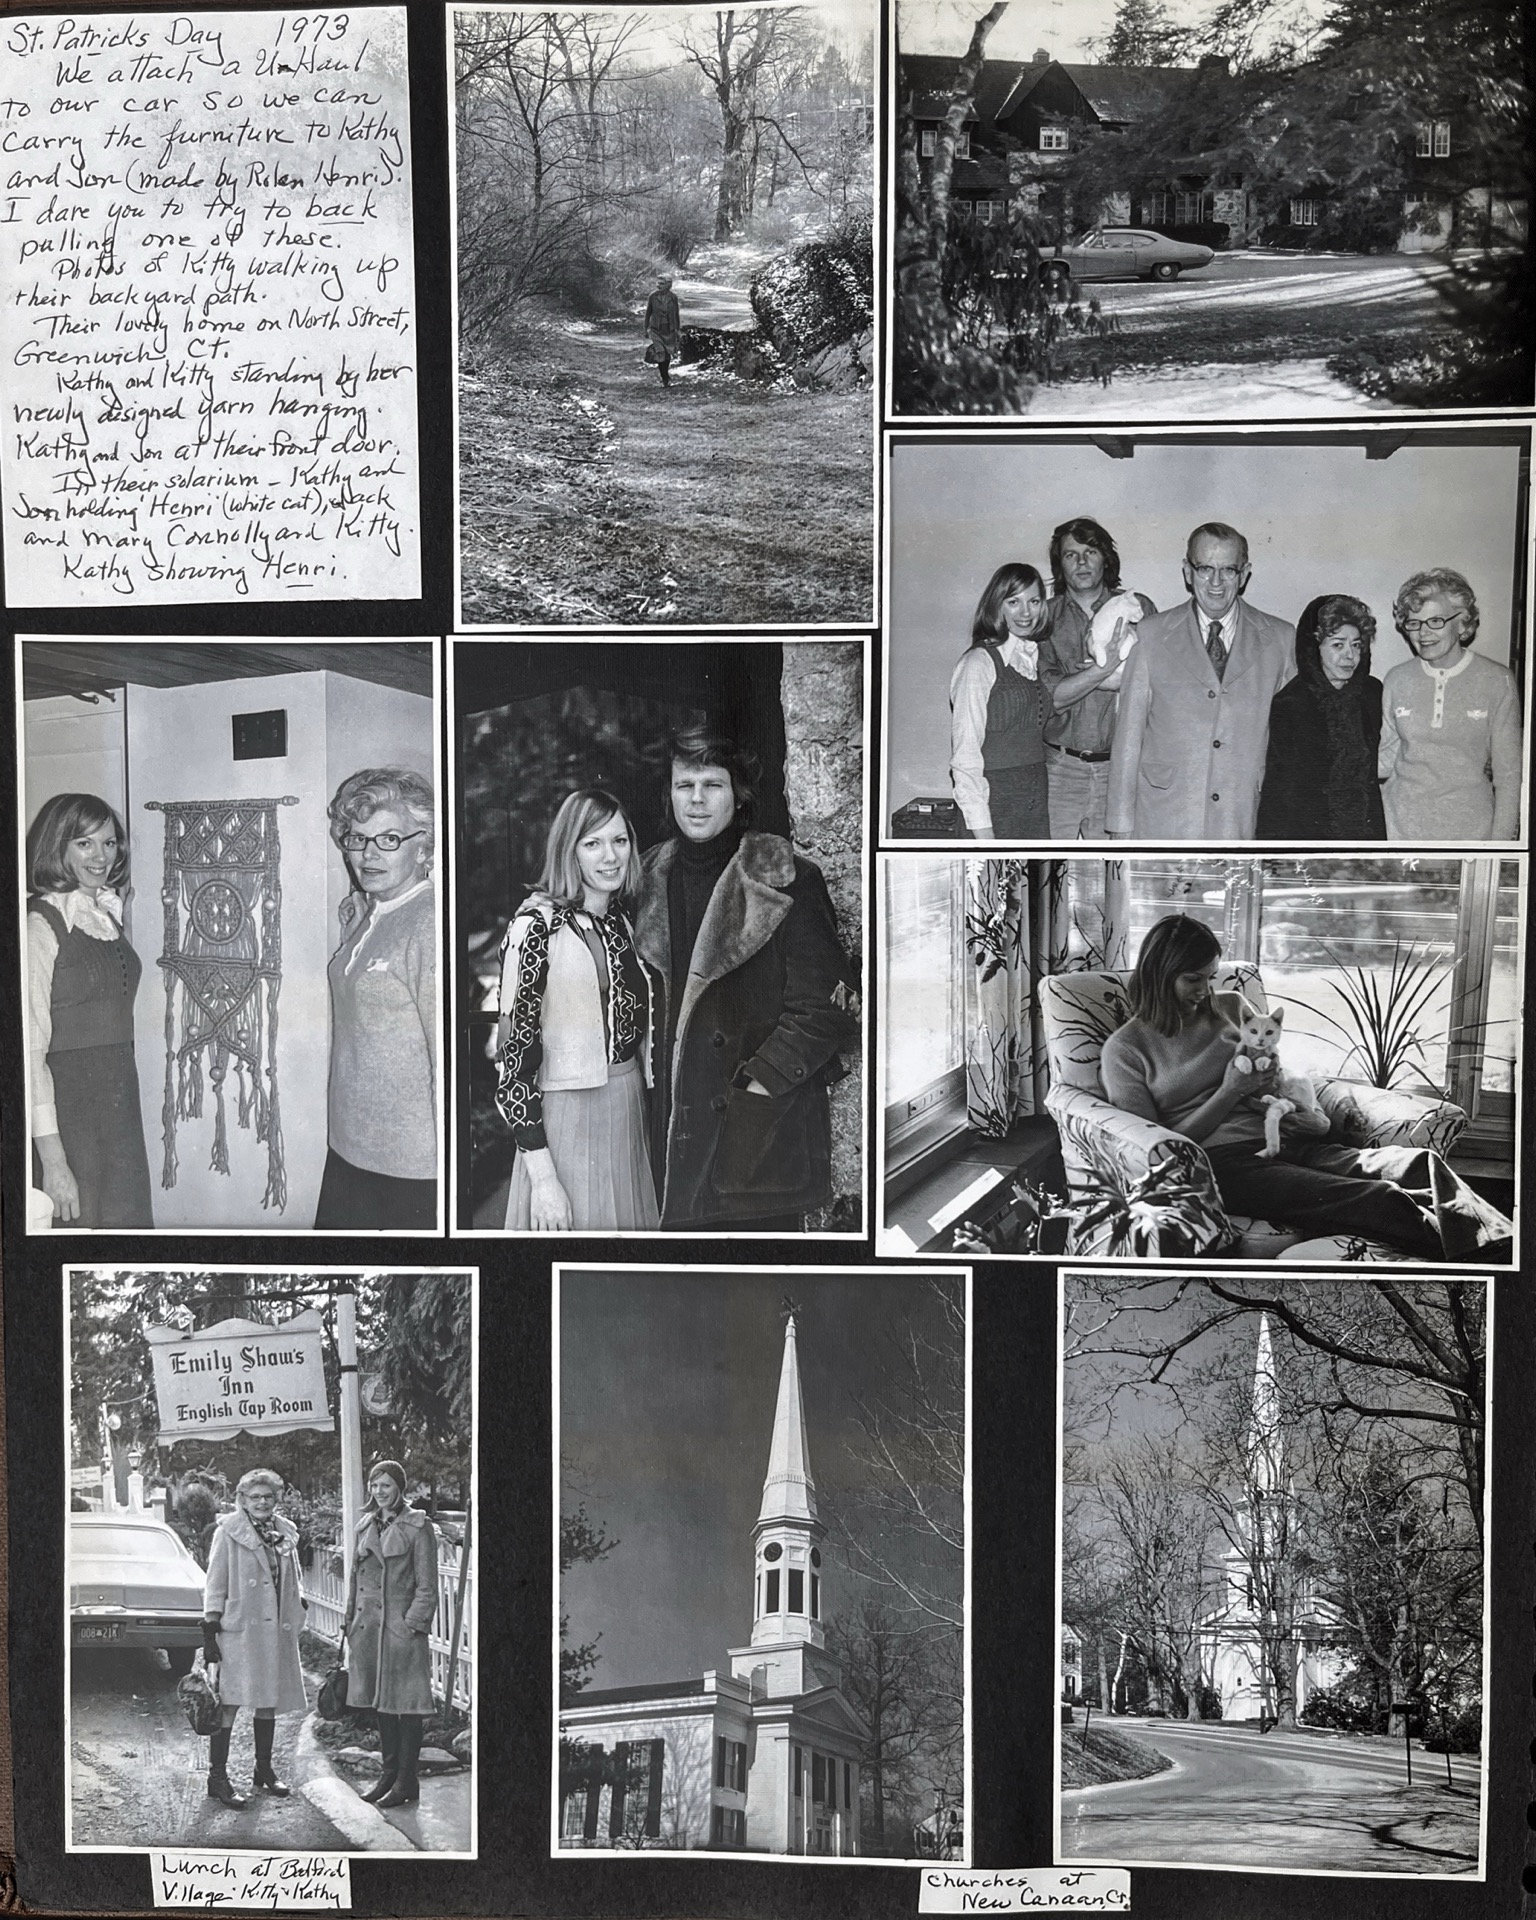 St. Patricks Day 1973
We attach a U-Haul
to our car so we can
carry the furniture to Kathy
and Jon (made by Rolan Henri).
I dare you to try to back
pulling one of these.
Photos of Kitty walking up
their backyard path.
Their lovely home on North Street,
Greenwich Ct.
Kathy and Kitty standing by her
newly designed yarn hanging.
Kathy and Jon at their front door.
In their solarium - Kathy and
Jon holding "Henri" (white cat), Jack
and Mary Connolly and Kitty.
Kathy showing Henri.
Emily Shaw's
Inn
English Tap Room
Lunch at Bedford
Village: Kitty & Kathy
Churches at
New Canaan, Ct.